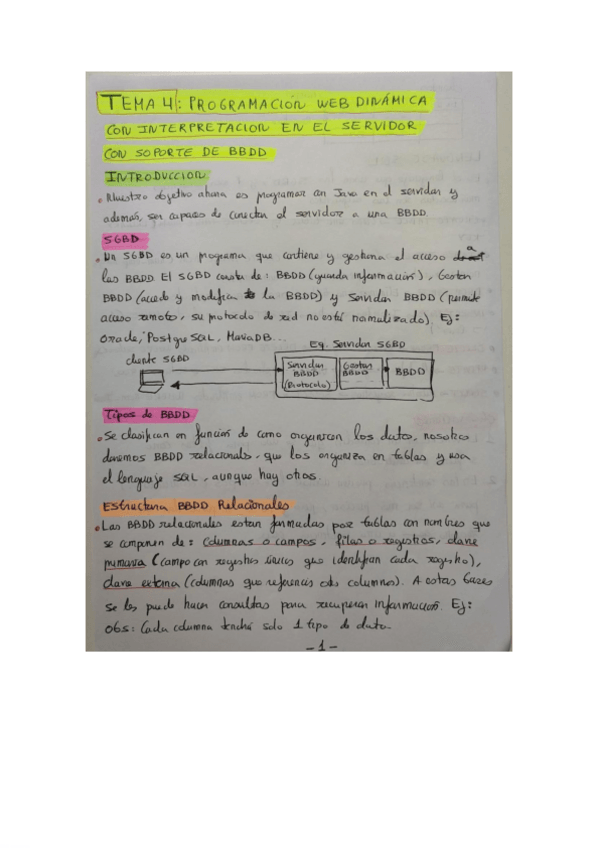 TEMA 4: PROGRAMACIÓN WEB DINÁMICA
CON INTERPRETACION EN EL SERVIDOR
CON SOPORTE DE BBDD
INTRODUCCION
• Nuestro objetivo ahora es programar en Java en el servidor y
además, ser capaces de conectar el servidor a una BBDD.
SGBD
• Un SGBD es un programa que contiene y gestiona el acceso a
las BBDD. El SGBD consta de: BBDD (guarda información), Gestor
BBDD (accede y modifica la BBDD) y Servidor BBDD (permite
acceso remoto, su protocolo de red no está normalizado). Ej:
Oracle, PostgreSQL, MariaDB...
Eq. Servidor SGBD
cliente SGBD
Servidor BBDD (Protocolo)
Gestor BBDD
BBDD
Tipos de BBDD
• Se clasifican en función de como organicen los datos, nosotros
daremos BBDD relacionals, que los organiza en tablas y usa
el lenguaje SQL, aunque hay otras.
Estructura BBDD Relacionales
• Las BBDD relacionales estan formadas por tablas con nombres que
se componen de: columnas o campos, filas o registros, clave
primaria (campo con registros únicos que identifican cada registro),
clave externa (columnas que referencias otras columnas). A estas bases
se les puede hacer consultas para recuperar información. Ej:
Obs: Cada columna tendrá solo 1 tipo de dato.
-1-